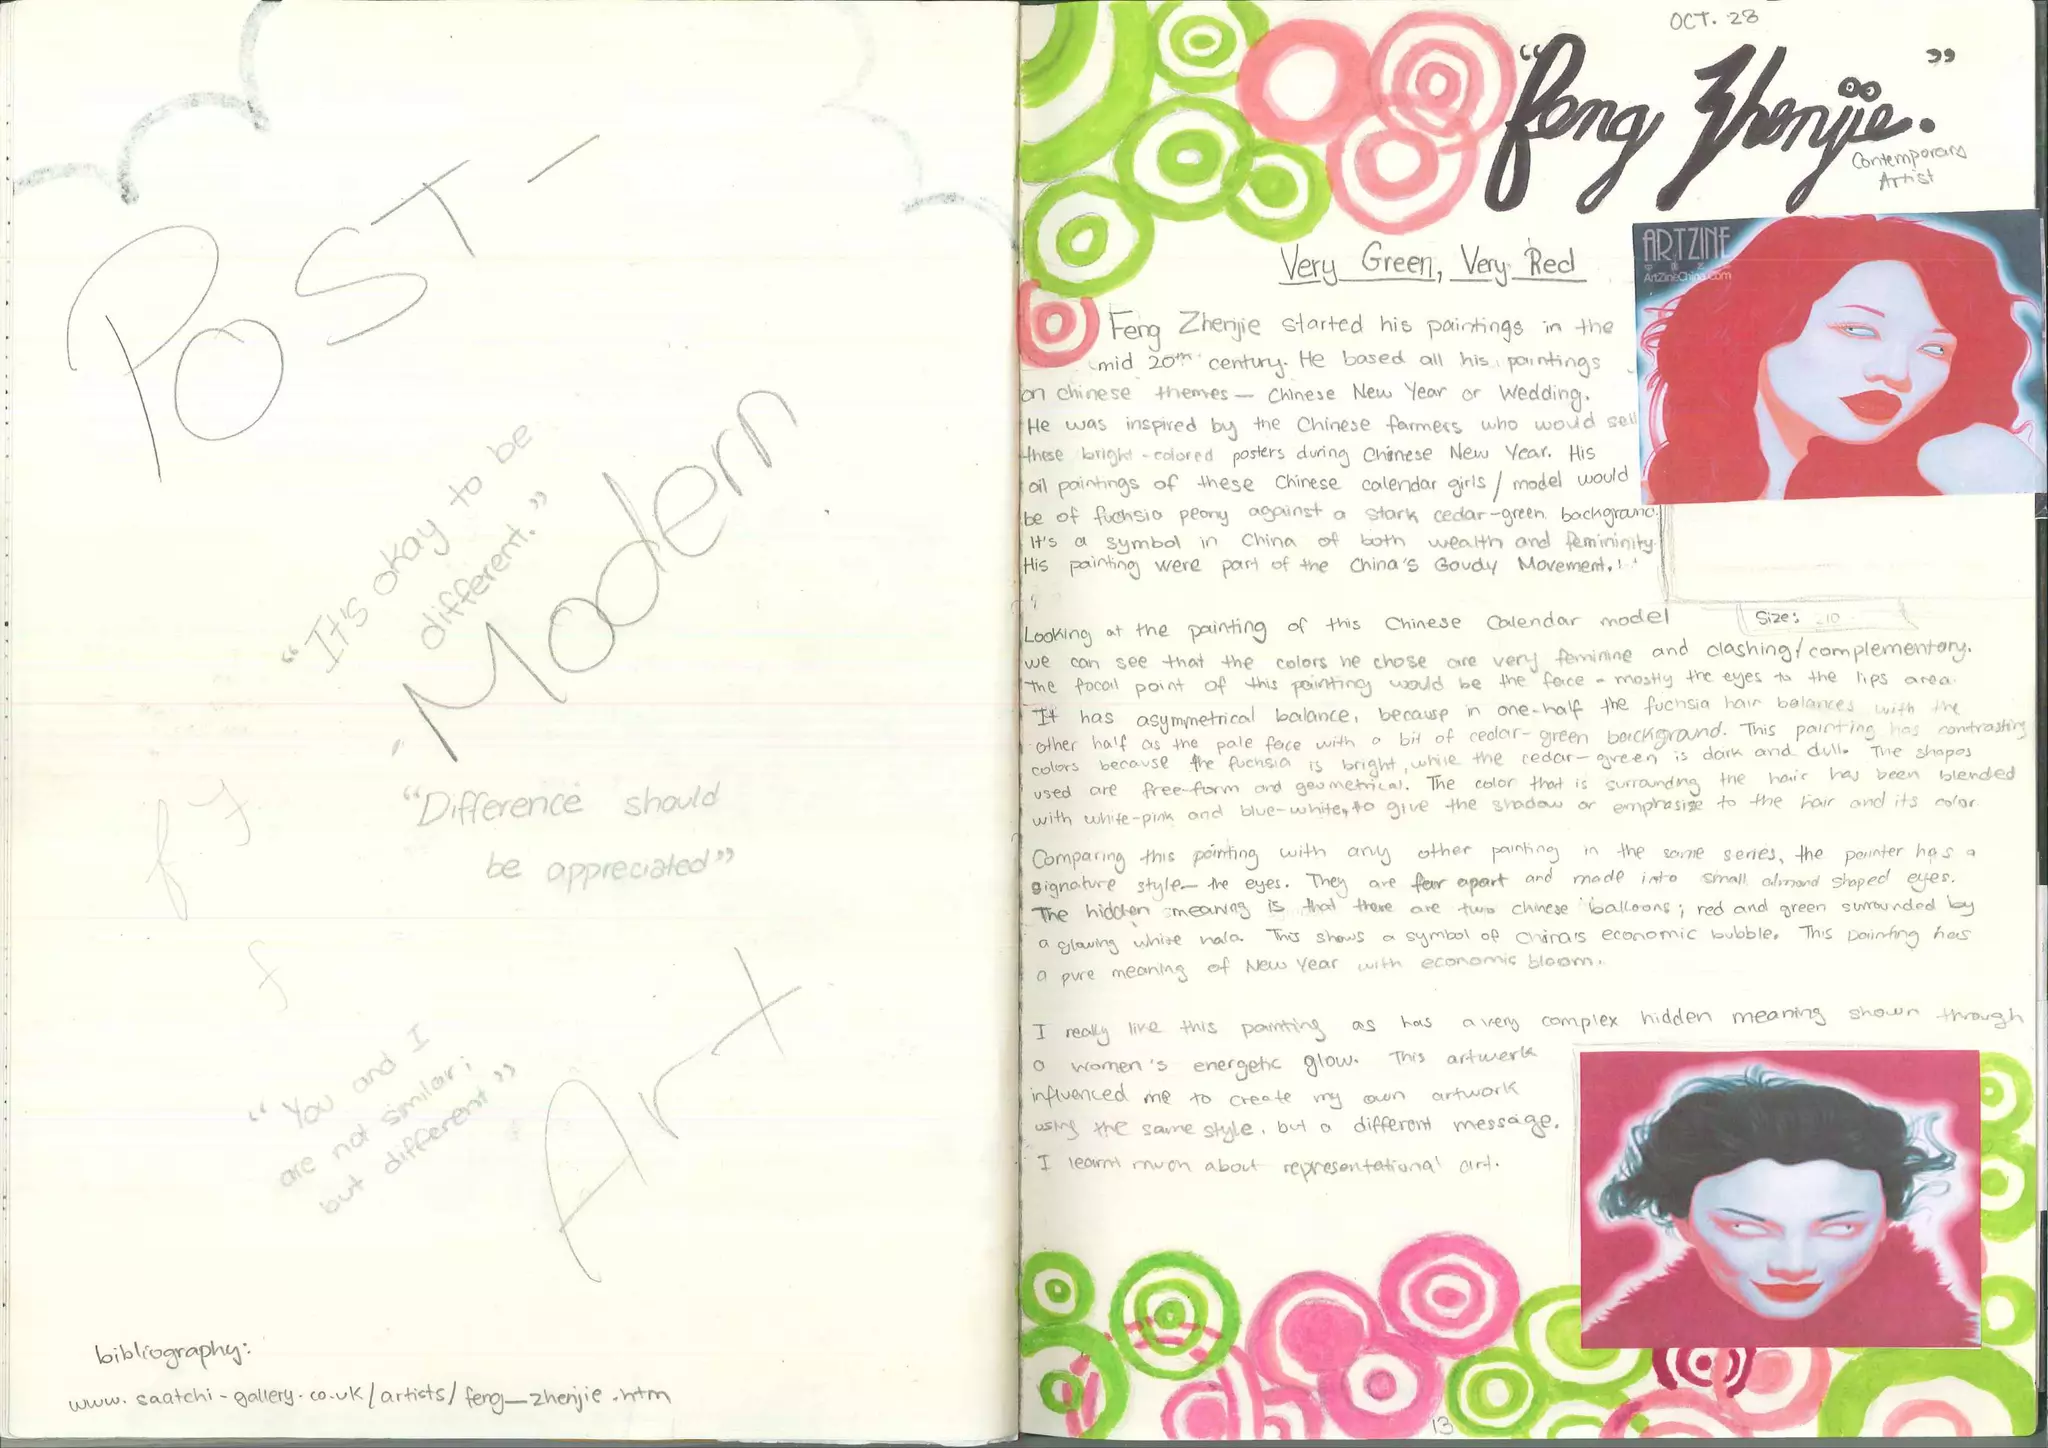 POST-
"It's okay to be
different."
Modern
"Difference should
be appreciated"
f
f
"You and I
are not similar;
but different"
Art
bibliography:
www.saatchi-gallery.co.uk/artists/feng_zhenjie.htm
OCT. 28
"Feng Zhenjie."
Contemporary
Artist
Very Green, Very Red
ARTZINE
ArtZineChina.com
Feng Zhenjie started his paintings in the
mid 20th century. He based all his paintings
on chinese themes — Chinese New Year or Wedding.
He was inspired by the Chinese farmers who would sell
these bright-colored posters during Chinese New Year. His
oil paintings of these Chinese calendar girls / model would
be of fuchsia peony against a stark cedar-green background.
It's a symbol in China of both wealth and femininity.
His painting were part of the China's Goudy Movement.
Size: 10
Looking at the painting of this Chinese Calendar model
we can see that the colors he chose are very feminine and clashing/complementary.
The focal point of this painting would be the face - mostly the eyes to the lips area.
It has asymmetrical balance, because in one-half the fuchsia hair balances with the
other half as the pale face with a bit of cedar-green background. This painting has contrasting
colors because the fuchsia is bright, while the cedar-green is dark and dull. The shapes
used are free-form and geometrical. The color that is surrounding the hair has been blended
with white-pink and blue-white, to give the shadow or emphasize to the hair and its color.
Comparing this painting with any other painting in the same series, the painter has a
signature style— the eyes. They are far apart and made into small almond shaped eyes.
The hidden meaning is that there are two chinese balloons; red and green surrounded by
a glowing white hala. This shows a symbol of China's economic bubble. This painting has
a pure meaning of New Year with economic bloom.
I really like this painting as has a very complex hidden meaning shown through
a women's energetic glow. This artwork
influenced me to create my own artwork
using the same style, but a different message.
I learnt much about representational art.
13